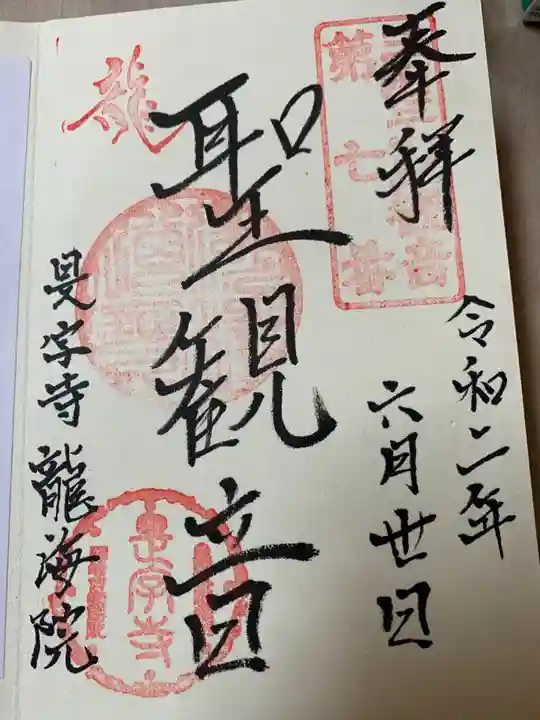 奉拝
第七番
令和二年
六月丗日
聖観音
龍
是字寺龍海院
是字寺